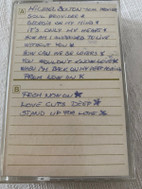 A MICHAEL BOLTON
SOUL PROVIDER *
GEORGIA ON MY MIND *
IT'S ONLY MY HEART *
HOW AM I SUPPOSED TO LIVE
WITHOUT YOU *
HOW CAN WE BE LOVERS *
YOU WOULDN'T KNOW LOVE *
WHEN I'M BACK ON MY FEET AGAIN
FROM NOW ON
B
FROM NOW ON *
LOVE CUTS DEEP *
STAND UP FOR LOVE *